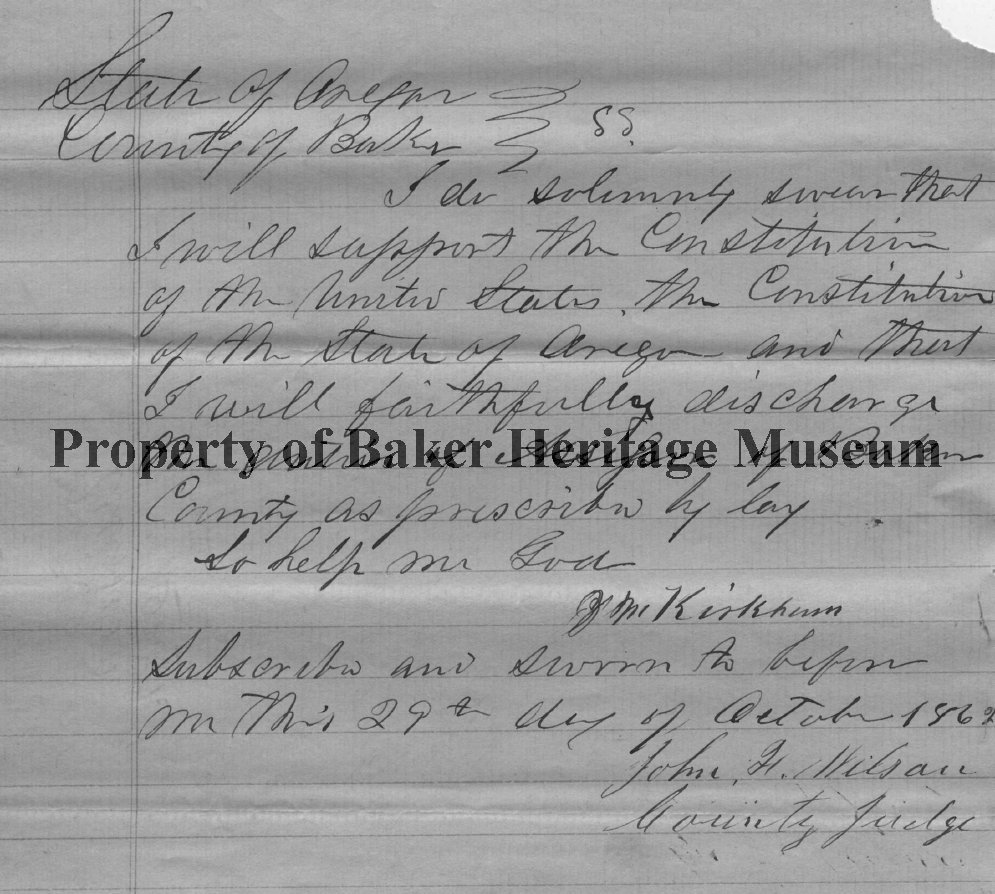 State of Oregon
County of Baker } SS.
I do solemnly swear that
I will support the Constitution
of the United States, the Constitution
of the State of Oregon and that
I will faithfully discharge
the duties of of Baker
Property of Baker Heritage Museum
County as prescribed by law
So help me God
M Kirkham
Subscribed and sworn to before
me this 29th day of October 1862
John F. Wilson
County Judge